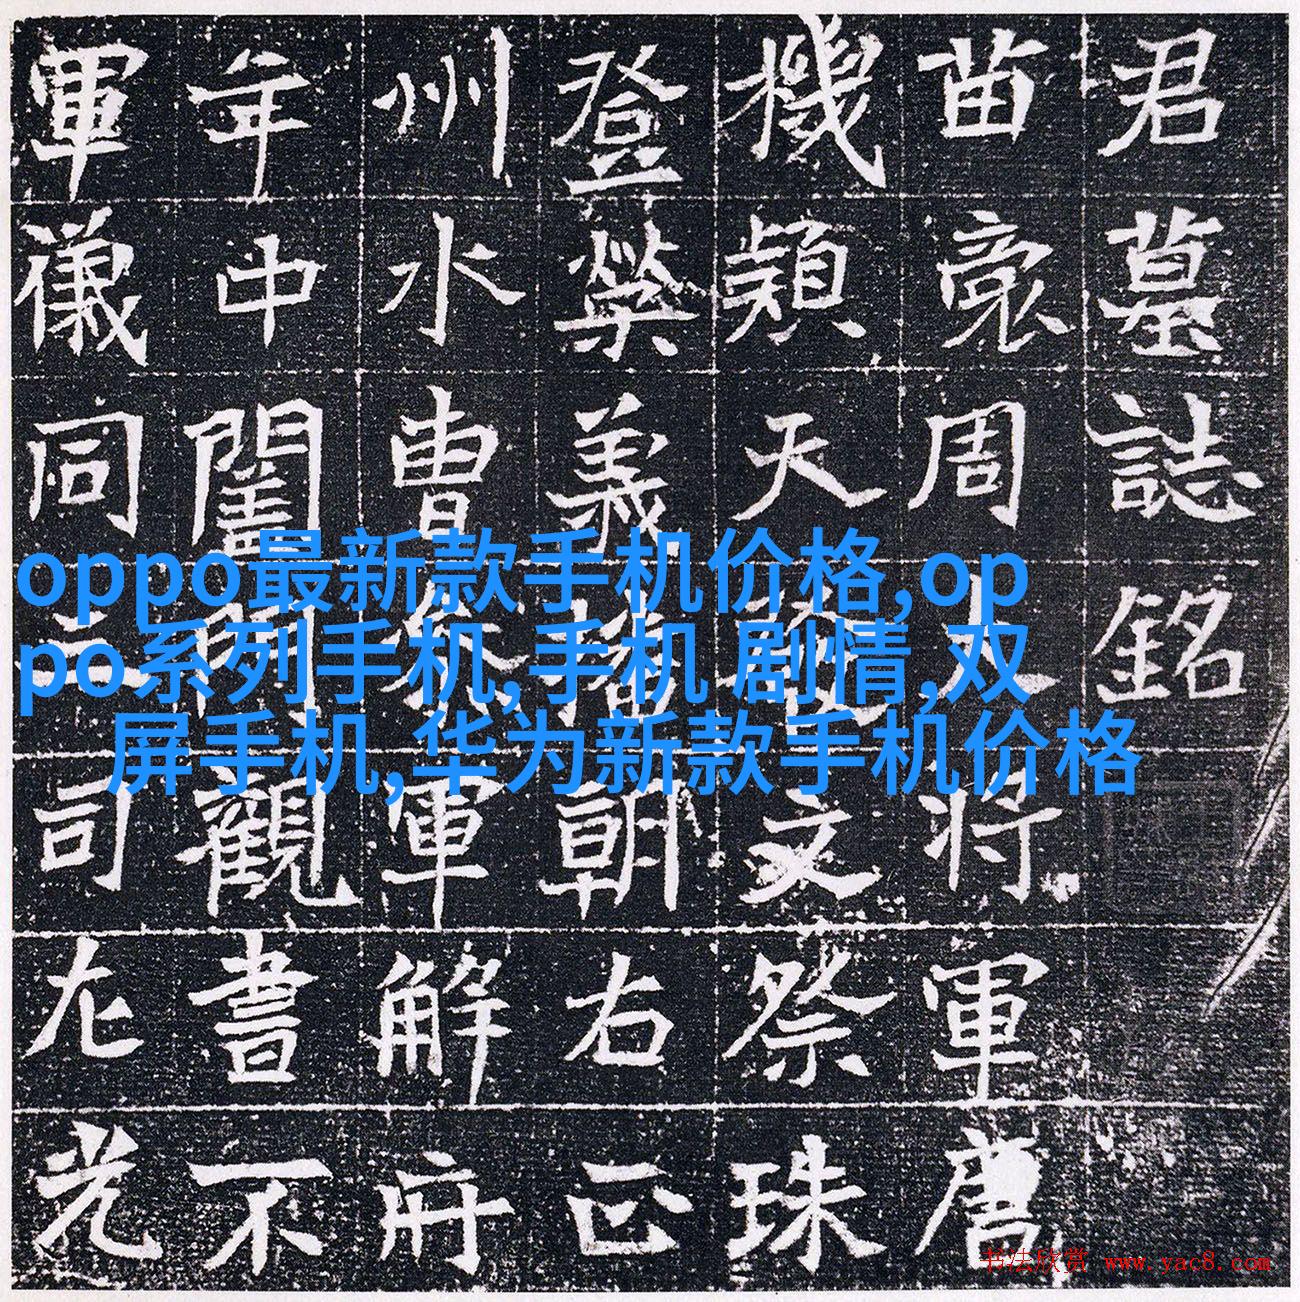 君墓誌銘
苗裔周大将軍
機穎天文祭珠
登榮義播朝右正
州水曹参軍解
年中閨門觀書不
軍儀同三司左光
oppo最新款手机价格,op
po系列手机,手机 剧情,双
屏手机,华为新款手机价格
书法欣赏 www.yac8.com